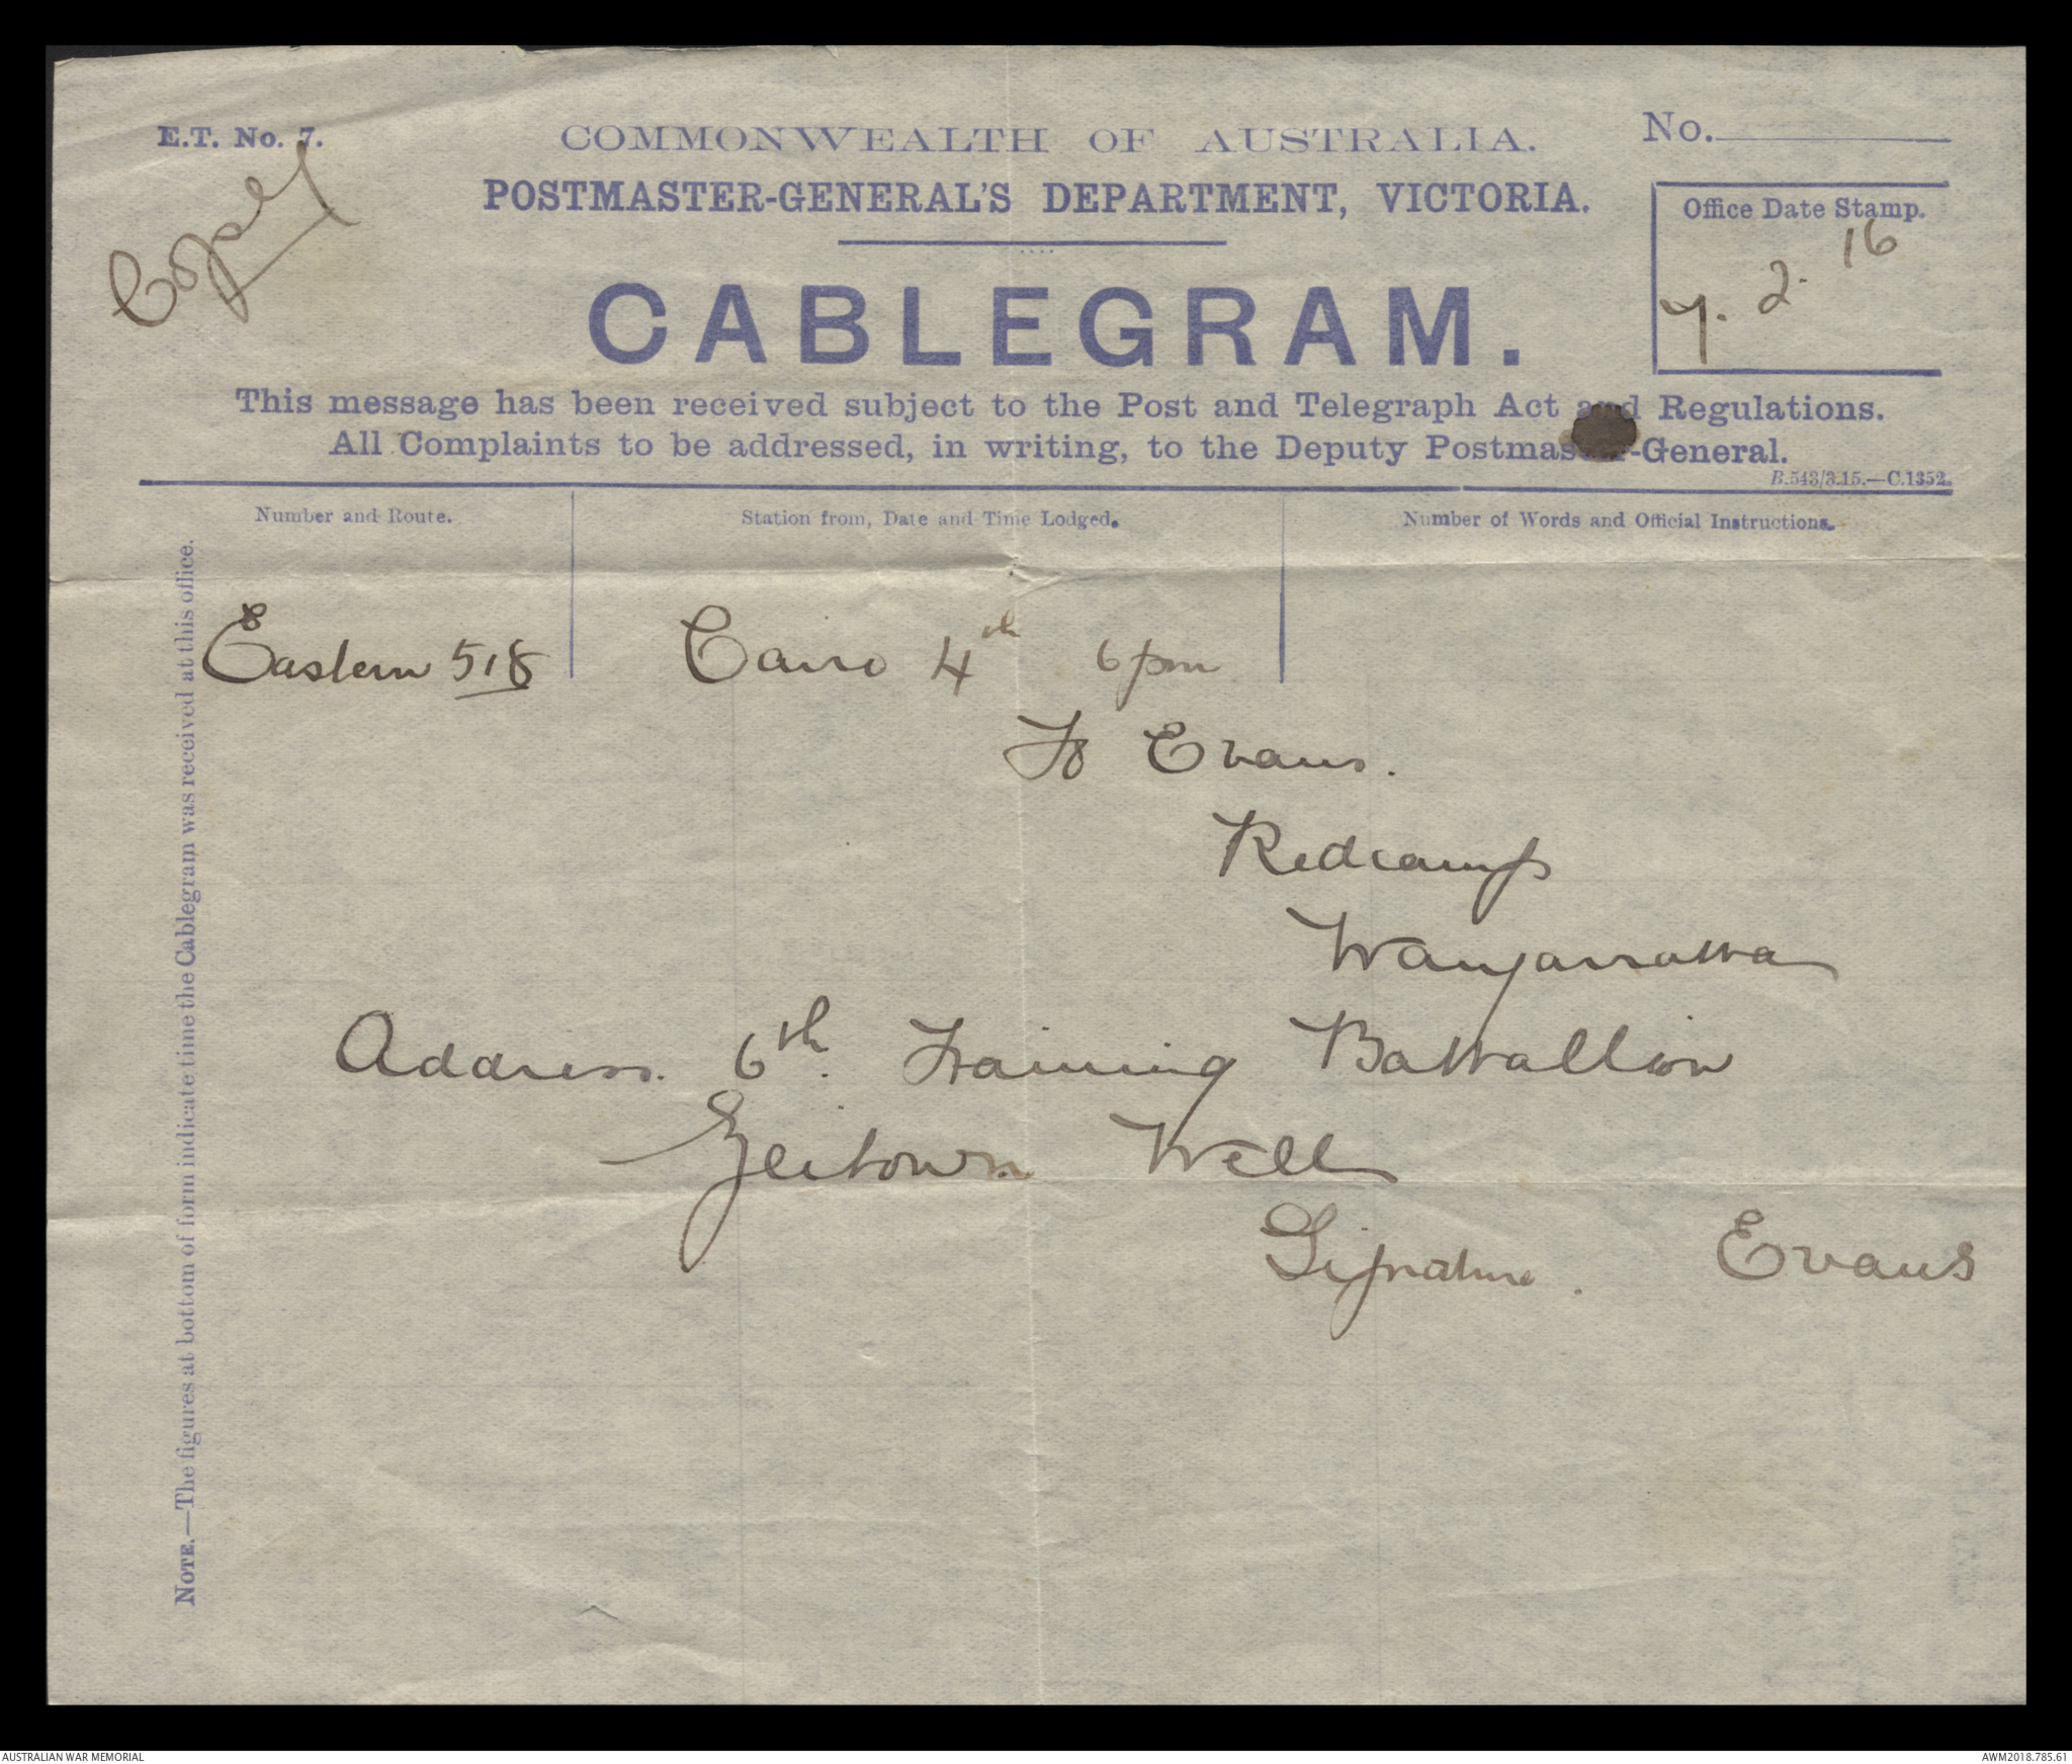 E.T. No. 7.
Copy
COMMONWEALTH OF AUSTRALIA.
POSTMASTER-GENERAL'S DEPARTMENT, VICTORIA.
CABLEGRAM.
No.
Office Date Stamp.
7. 2. 16
This message has been received subject to the Post and Telegraph Act and Regulations.
All Complaints to be addressed, in writing, to the Deputy Postmaster-General.
B.543/3.15.—C.1352.
Number and Route.
Station from, Date and Time Lodged.
Number of Words and Official Instructions.
Eastern 518
Cairo 4th 6pm
To Evans.
Redcamp
Wangarratta
Address. 6th Training Battallion
Zeitown Well
Signature. Evans
NOTE.—The figures at bottom of form indicate time the Cablegram was received at this office.
AUSTRALIAN WAR MEMORIAL
AWM2018.785.61